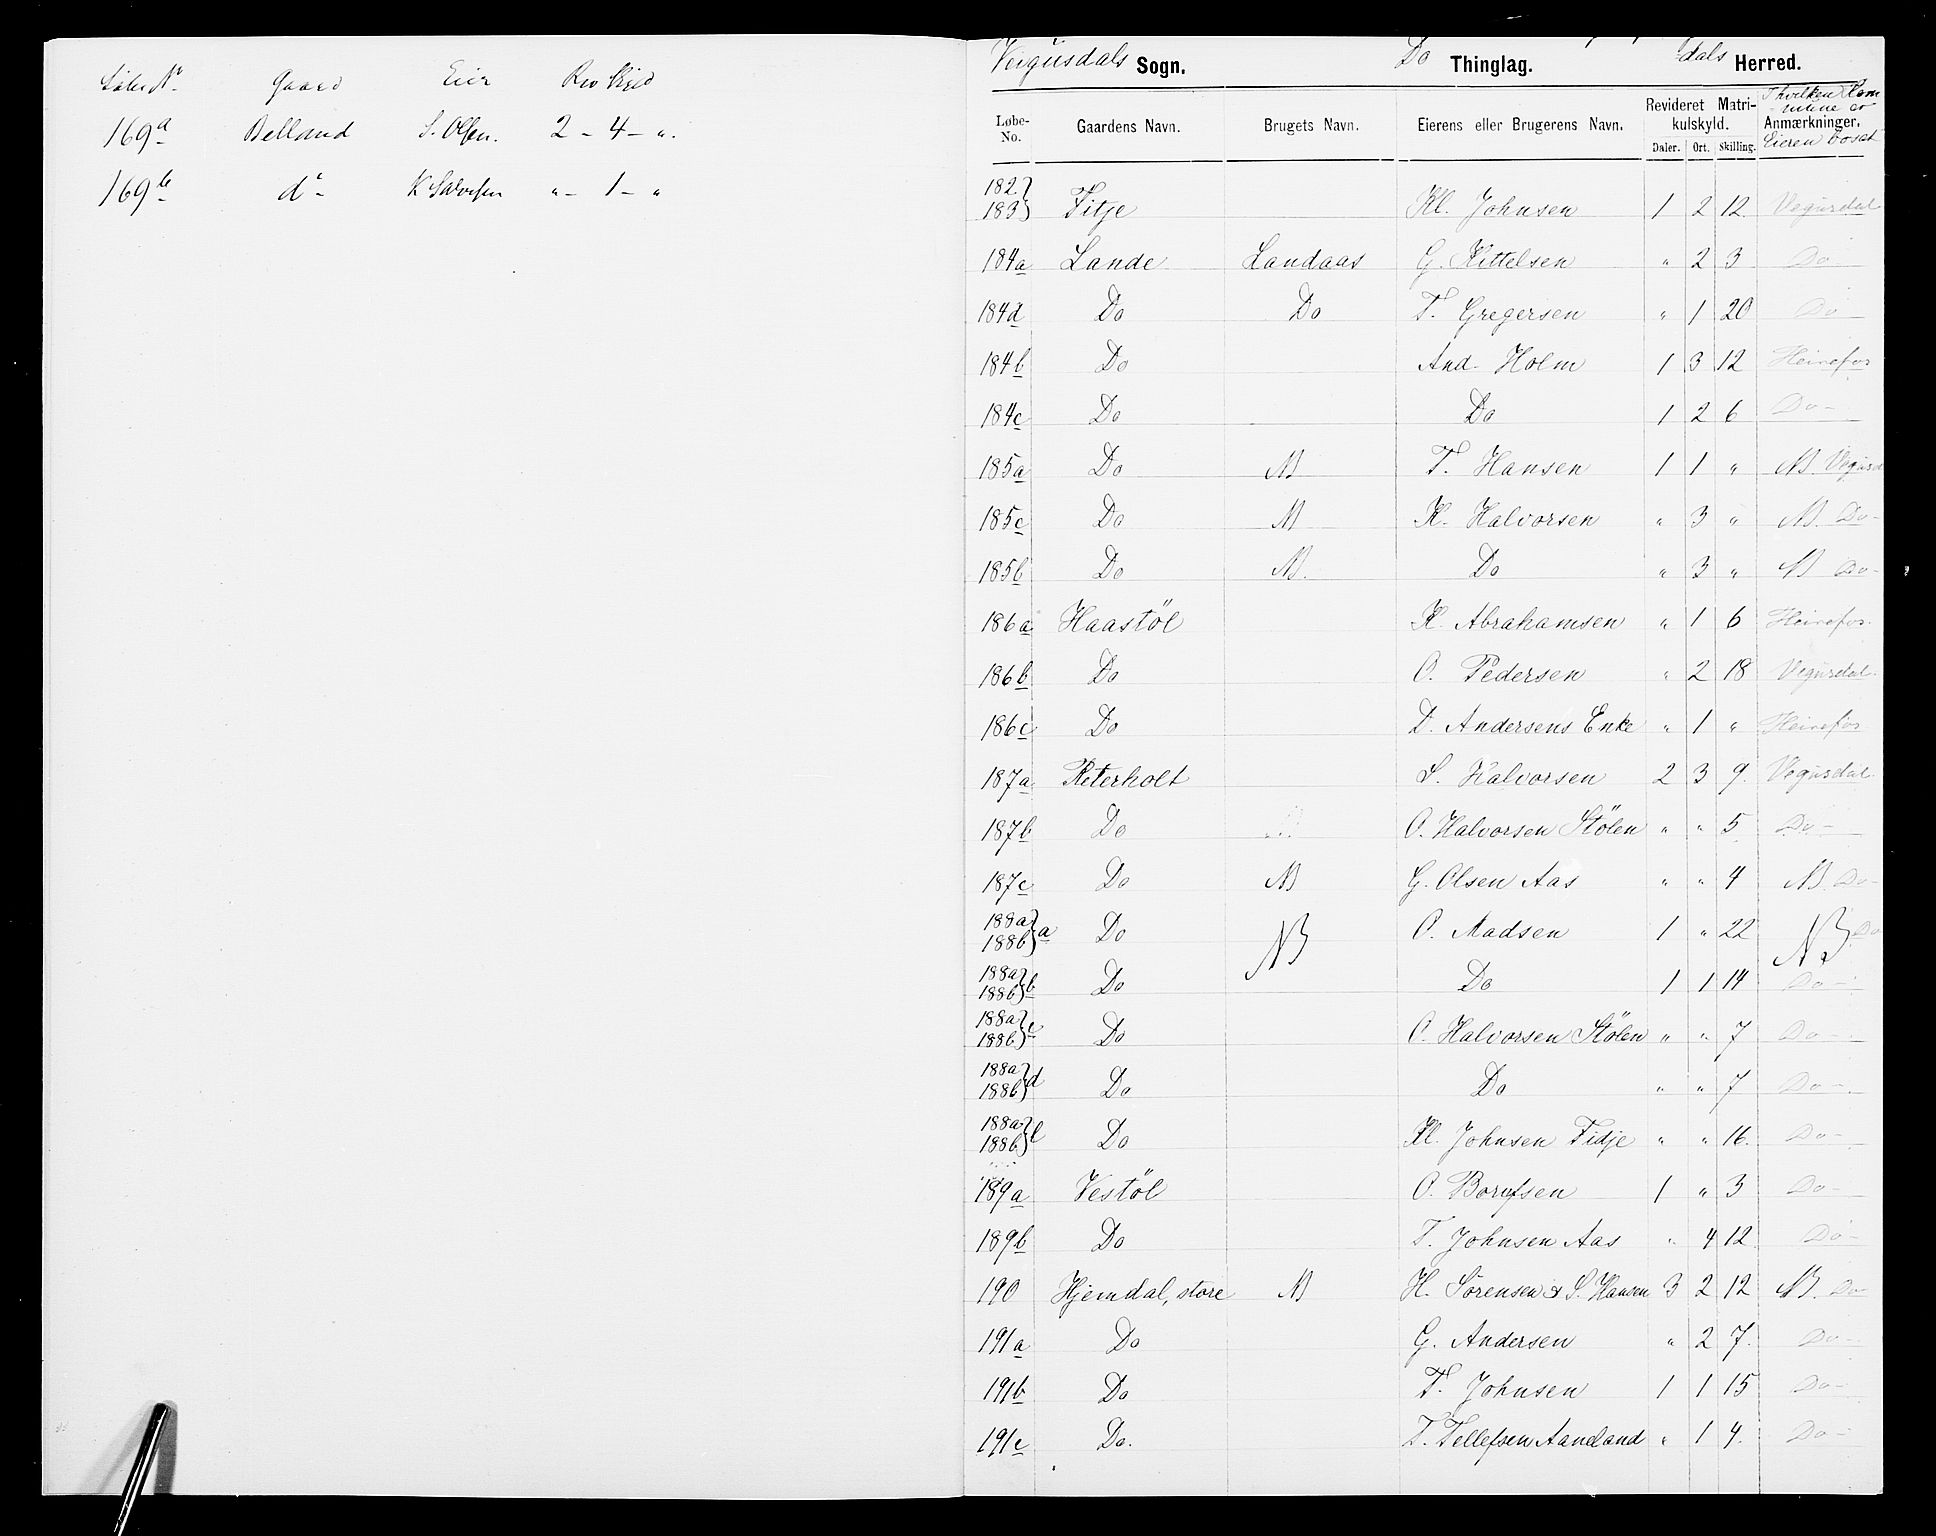 Løbe No. Gaard Eier Rev Skyld
169a Belland S. Olsen. 2 - 4 - „.
169b do - K Salvesen „ - 1 - „
Vegusdals Sogn. Do Thinglag. dals Herred.
Løbe-No. Gaardens Navn. Brugets Navn. Eierens eller Brugerens Navn. Revideret Matrikulskyld. Daler. Ort. Skilling. Anmærkninger. I hvilken Kommune er Eieren bosat
182 183 } Fitje Kl. Johnsen 1 2 12 Vegusdal
184a Lande Landaas G. Kittelsen „ 2 3 Do
184d Do Do T. Gregersen „ 1 20 Do
184b Do And. Holm 1 3 12 Heirefos
184c Do Do 1 2 6 Do -
185a Do NB T. Hansen 1 1 „ NB. Vegusd
185c Do NB K. Halvorsen „ 3 „ NB. Do -
185b Do NB. Do „ 3 „ NB Do -
186a Haastöl K. Abrahamsen „ 1 6 Heirefos.
186b Do O. Pedersen „ 2 18 Vegusdal.
186c Do D. Andersens Enke „ 1 „ Heirefos
187a Reterholt S. Halvorsen 2 3 9. Vegusdal.
187b Do O. Halvorsen Stölen „ „ 5 Do -
187c Do NB G. Olsen Aas „ „ 4 NB. Do -
188a 188b } a Do NB O. Madsen 1 „ 22 NB Do
188a 188b } b Do Do 1 1 14 Do -
188a 188b } c Do O. Halvorsen Stölen „ „ 7 Do -
188a 188b } d Do Do „ „ 7 Do -
188a 188b } Do Kl. Johnsen Fidje „ „ 16. Do -
189a Vestöl O. Borufsen 1 „ 3 Do -
189b Do T. Johnsen Aas „ 4 12 Do -
190 Hjemdal, store NB H. Sörensen & S. Hansen 3 2 12 NB. Do
191a Do G. Andersen „ 2 7. Do -
191b Do T. Johnsen 1 1 15 Do -
191c Do. T. Tellefsen Aaneland „ 1 4. Do -